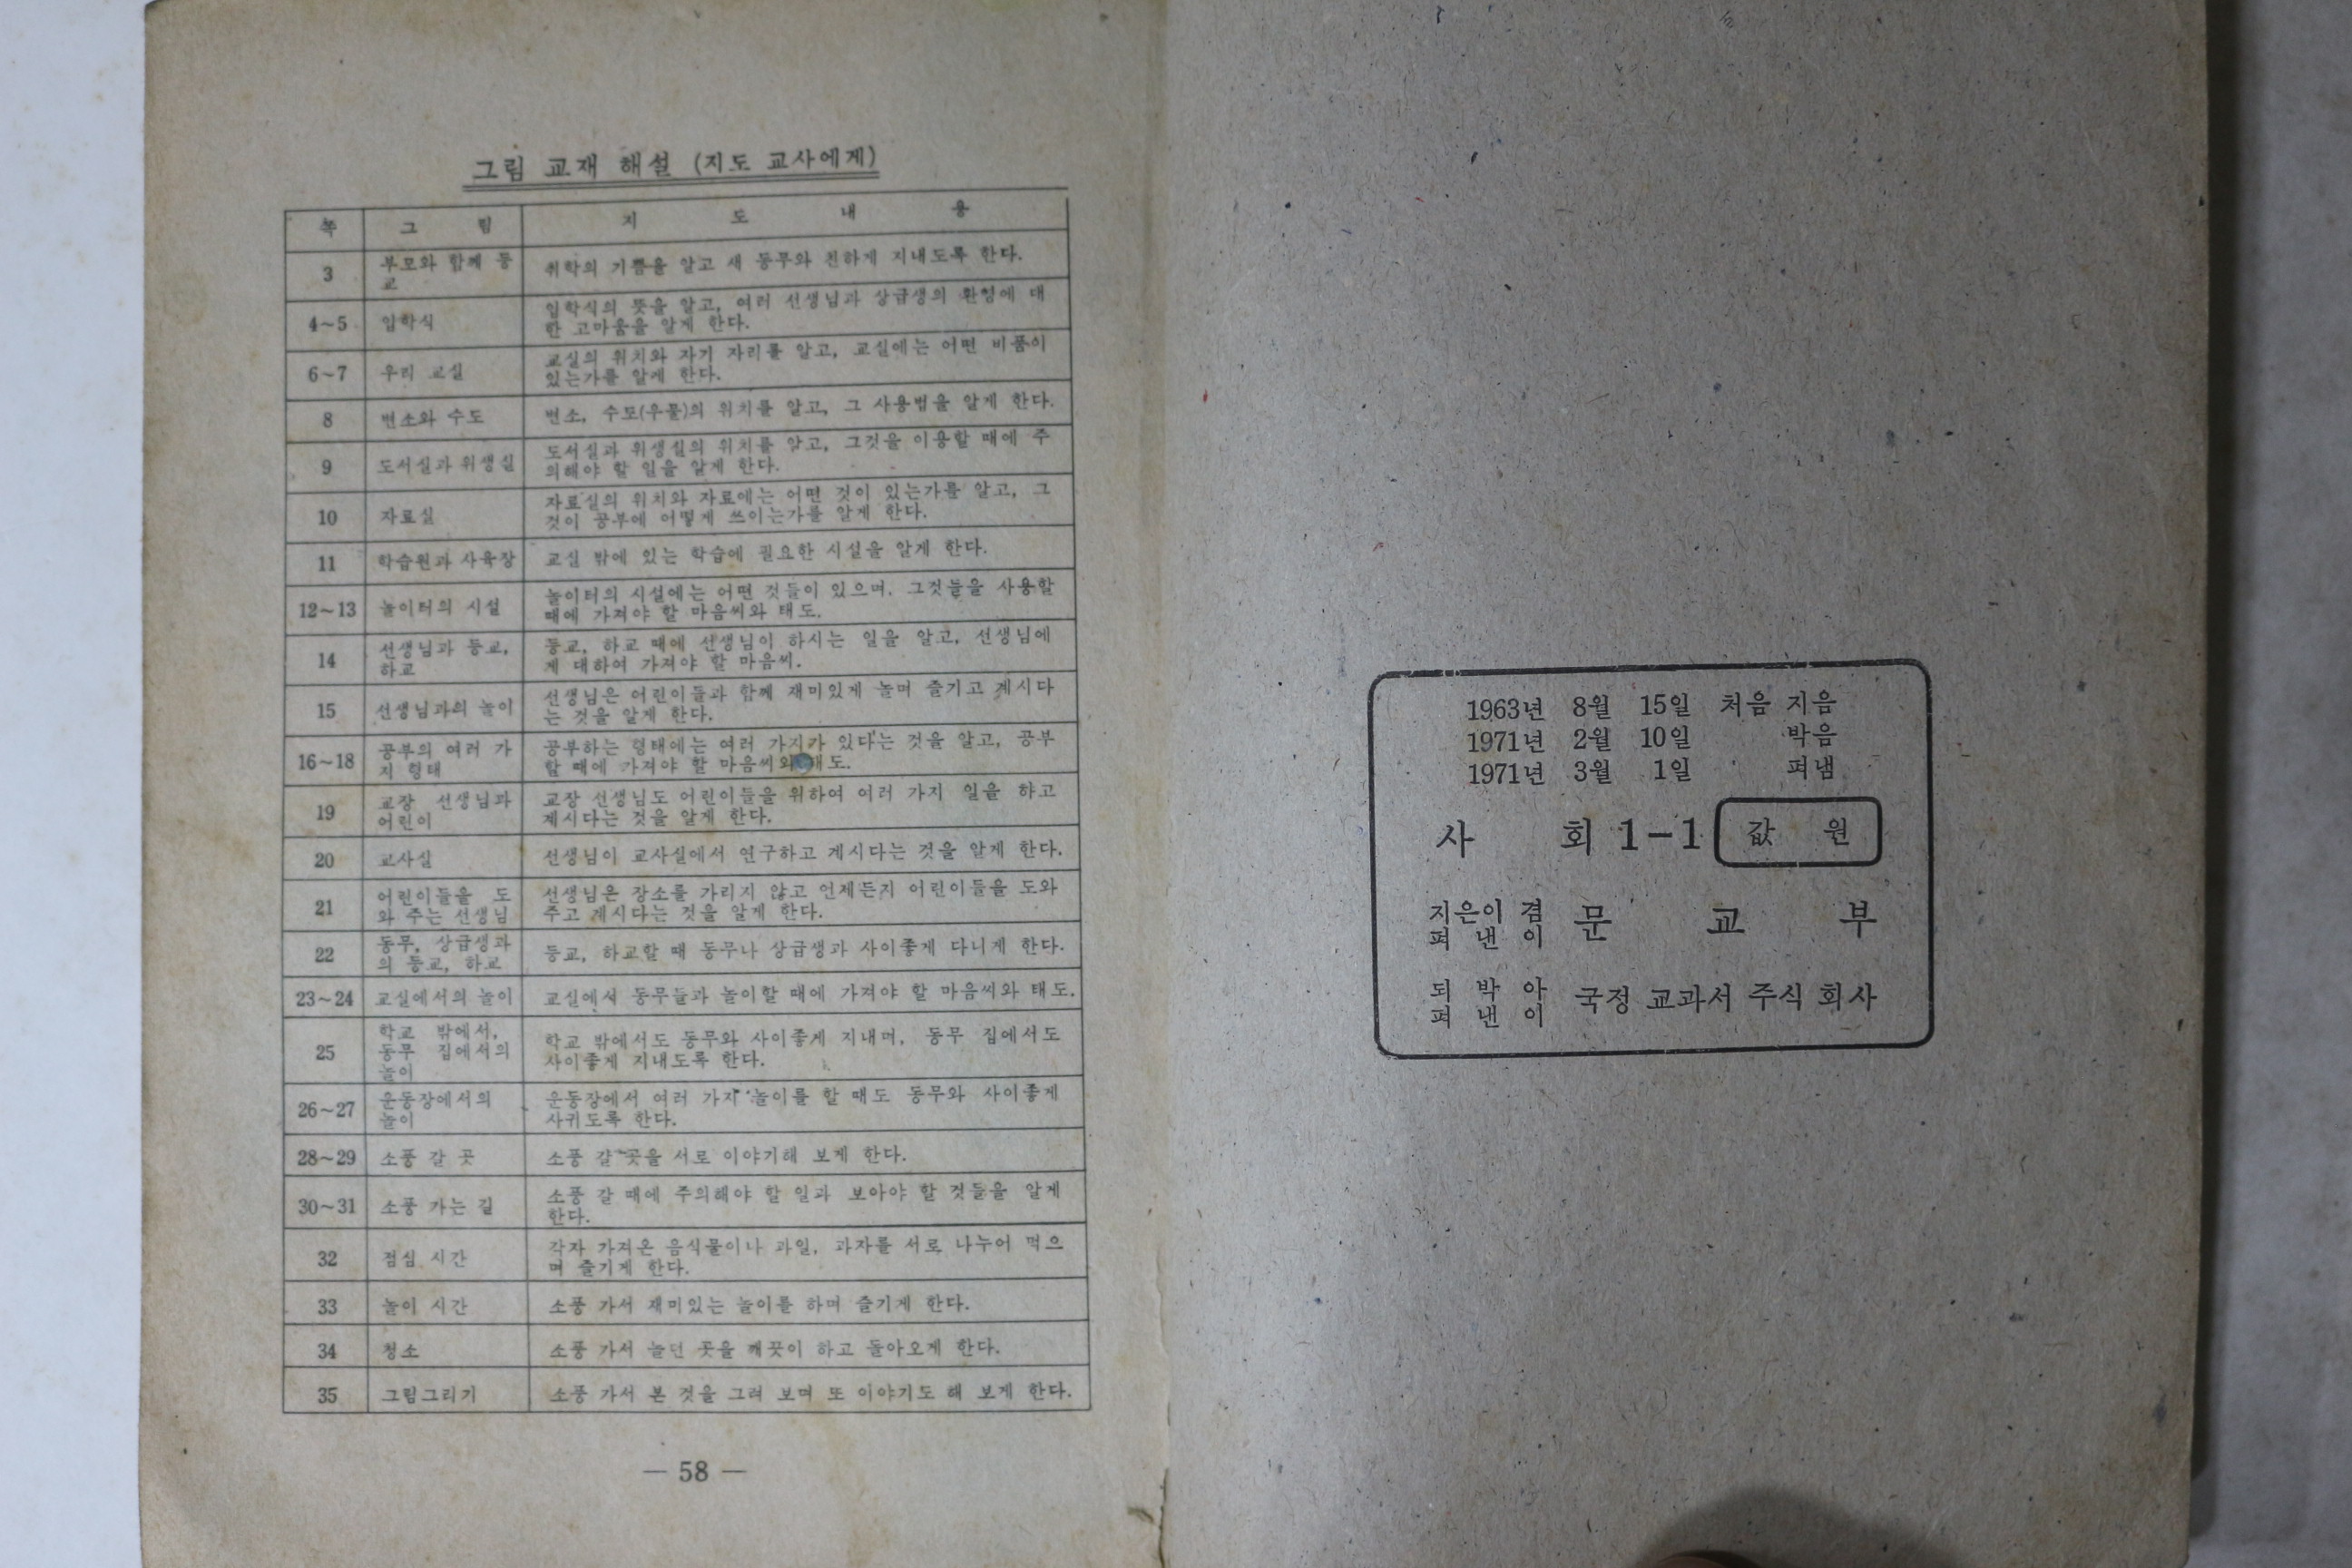 그림 교재 해설 (지도 교사에게)
쪽 그 림 지 도 내 용
3 부모와 함께 등 취학의 기쁨을 알고 새 동무와 친하게 지내도록 한다.
교
4~5 입학식 입학식의 뜻을 알고, 여러 선생님과 상급생의 환영에 대
한 고마움을 알게 한다.
6~7 우리 교실 교실의 위치와 자기 자리를 알고, 교실에는 어떤 비품이
있는가를 알게 한다.
8 변소와 수도 변소, 수도(우물)의 위치를 알고, 그 사용법을 알게 한다.
9 도서실과 위생실 도서실과 위생실의 위치를 알고, 그것을 이용할 때에 주
의해야 할 일을 알게 한다.
10 자료실 자료실의 위치와 자료에는 어떤 것이 있는가를 알고, 그
것이 공부에 어떻게 쓰이는가를 알게 한다.
11 학습원과 사육장 교실 밖에 있는 학습에 필요한 시설을 알게 한다.
12~13 놀이터의 시설 놀이터의 시설에는 어떤 것들이 있으며, 그것들을 사용할
때에 가져야 할 마음씨와 태도.
14 선생님과 등교, 등교, 하교 때에 선생님이 하시는 일을 알고, 선생님에
하교 게 대하여 가져야 할 마음씨.
15 선생님과의 놀이 선생님은 어린이들과 함께 재미있게 놀며 즐기고 계시다
는 것을 알게 한다.
16~18 공부의 여러 가 공부하는 형태에는 여러 가지가 있다는 것을 알고, 공부
지 형태 할 때에 가져야 할 마음씨와 태도.
19 교장 선생님과 교장 선생님도 어린이들을 위하여 여러 가지 일을 하고
어린이 계시다는 것을 알게 한다.
20 교사실 선생님이 교사실에서 연구하고 계시다는 것을 알게 한다.
21 어린이들을 도 선생님은 장소를 가리지 않고 언제든지 어린이들을 도와
와 주는 선생님 주고 계시다는 것을 알게 한다.
22 동무, 상급생과 등교, 하교할 때 동무나 상급생과 사이좋게 다니게 한다.
의 등교, 하교
23~24 교실에서의 놀이 교실에서 동무들과 놀이할 때에 가져야 할 마음씨와 태도.
25 학교 밖에서, 학교 밖에서도 동무와 사이좋게 지내며, 동무 집에서도
동무 집에서의 사이좋게 지내도록 한다.
놀이
26~27 운동장에서의 운동장에서 여러 가지 놀이를 할 때도 동무와 사이좋게
놀이 사귀도록 한다.
28~29 소풍 갈 곳 소풍 갈 곳을 서로 이야기해 보게 한다.
30~31 소풍 가는 길 소풍 갈 때에 주의해야 할 일과 보아야 할 것들을 알게
한다.
32 점심 시간 각자 가져온 음식물이나 과일, 과자를 서로 나누어 먹으
며 즐기게 한다.
33 놀이 시간 소풍 가서 재미있는 놀이를 하며 즐기게 한다.
34 청소 소풍 가서 놀던 곳을 깨끗이 하고 돌아오게 한다.
35 그림그리기 소풍 가서 본 것을 그려 보며 또 이야기도 해 보게 한다.
— 58 —
1963년 8월 15일 처음 지음
1971년 2월 10일 박음
1971년 3월 1일 펴냄
사 회 1-1 값 원
지은이 겸
펴 낸 이 문 교 부
되 박 아
펴 낸 이 국정 교과서 주식 회사